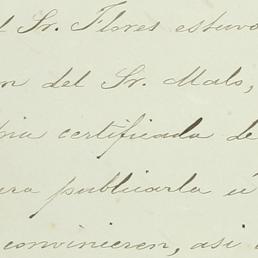 el Sr. Flores estuvo
n del Sr. Malo,
pia certificada de
ara publicarla ú
convinieren, asi